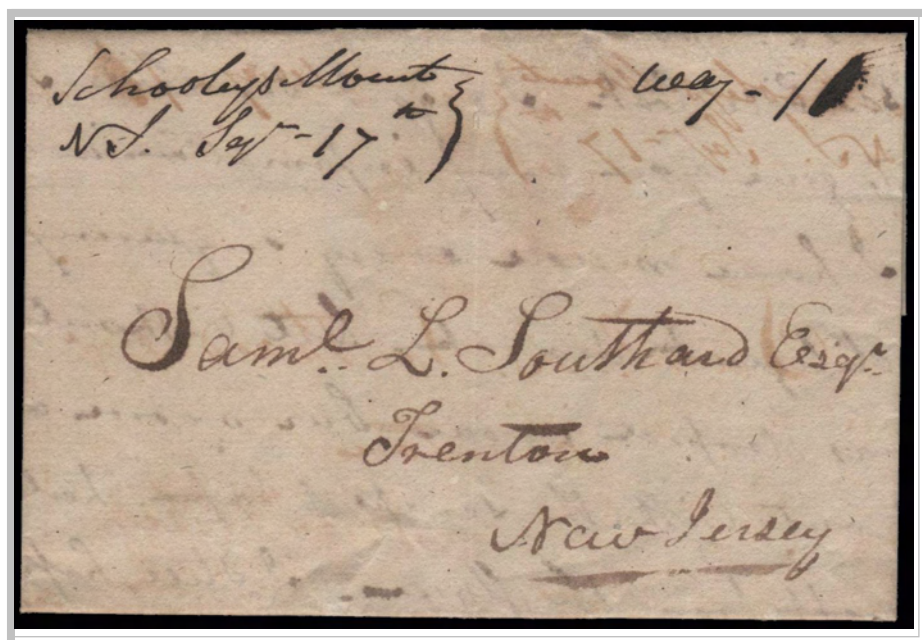 Schooleys Mount
way - 1
N J. Sepr - 17th
Saml. L. Southard Esqr.
Trenton
New Jersey